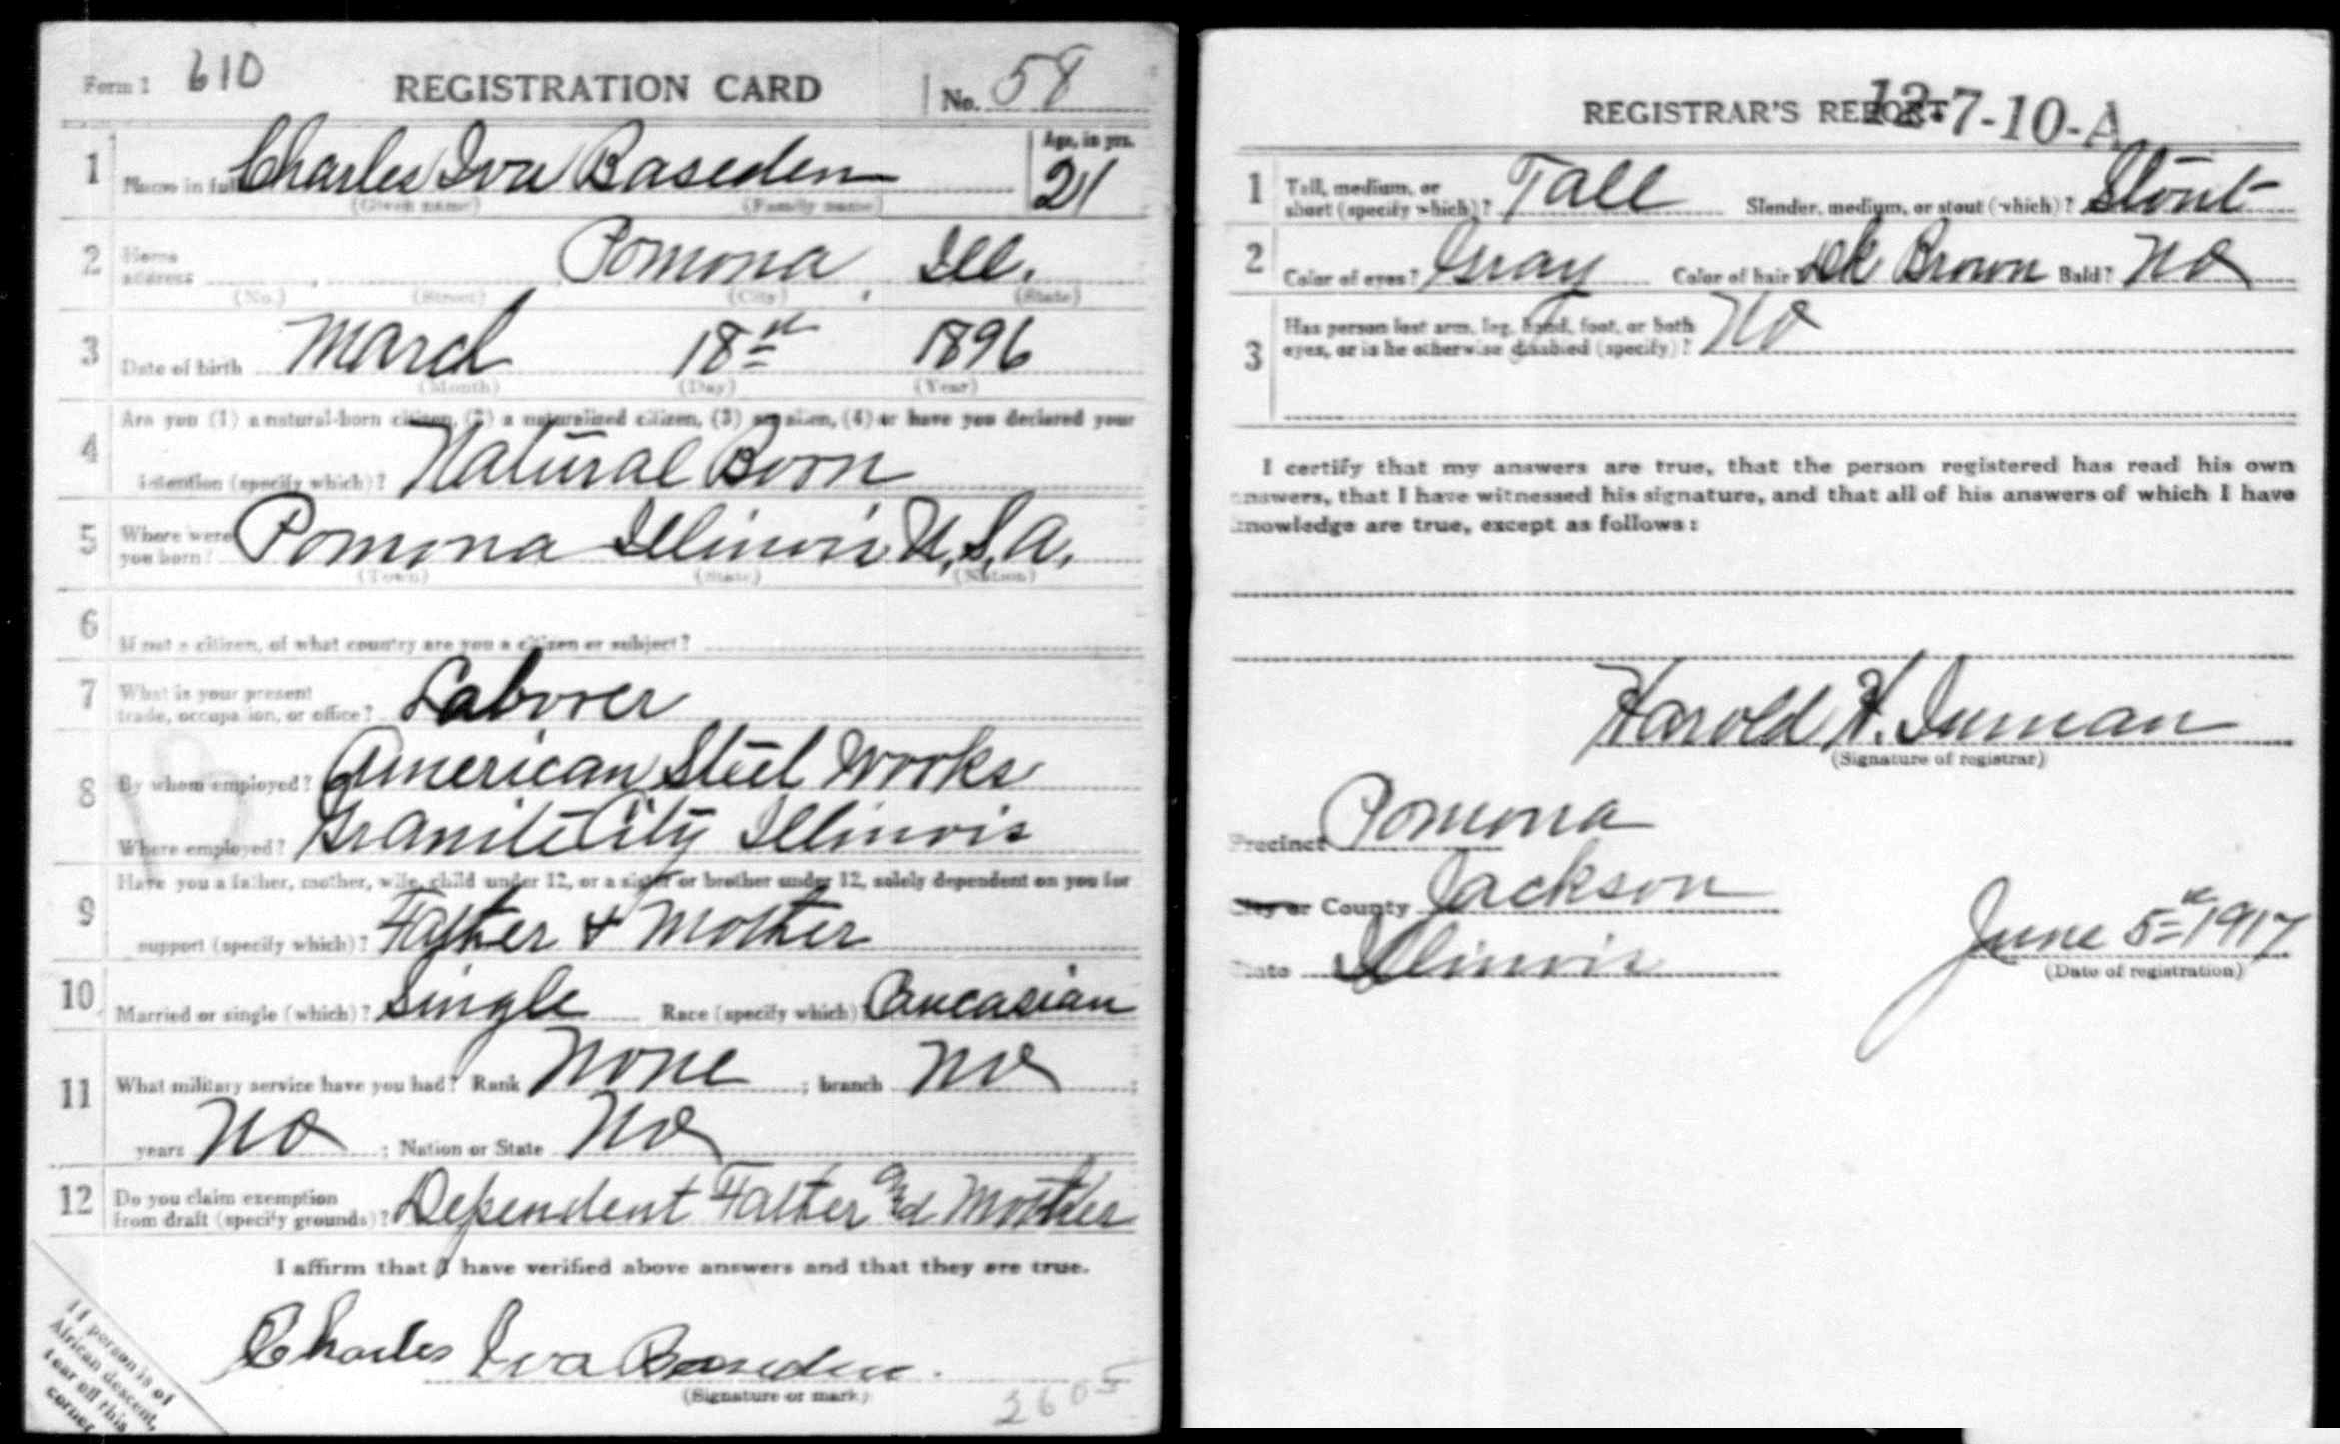 Form 1 610 REGISTRATION CARD No. 58
1 Name in full Charles Iva Baseden Age, in yrs. 21
(Given name) (Family name)
2 Home address Pomona Ill.
(No.) (Street) (City) (State)
3 Date of birth March 18th 1896
(Month) (Day) (Year)
4 Are you (1) a natural-born citizen, (2) a naturalized citizen, (3) an alien, (4) or have you declared your
intention (specify which)? Natural Born
5 Where were you born? Pomona Illinois U.S.A.
(Town) (State) (Nation)
6 If not a citizen, of what country are you a citizen or subject?
7 What is your present
trade, occupation, or office? Laborer
8 By whom employed? American Steel Works
Where employed? Granite City Illinois
9 Have you a father, mother, wife, child under 12, or a sister or brother under 12, solely dependent on you for
support (specify which)? Father & Mother
10 Married or single (which)? Single Race (specify which)? Caucasian
11 What military service have you had? Rank None ; branch No ;
years No ; Nation or State No
12 Do you claim exemption
from draft (specify grounds)? Dependent Father and Mother
I affirm that I have verified above answers and that they are true.
Charles Iva Baseden.
(Signature or mark)
2605
If person is of
African descent,
tear off this
corner
REGISTRAR'S REPORT 12-7-10-A
1 Tall, medium, or
short (specify which)? Tall Slender, medium, or stout (which)? Stout
2 Color of eyes? Gray Color of hair? Dk Brown Bald? No
3 Has person lost arm, leg, hand, foot, or both
eyes, or is he otherwise disabled (specify)? No
I certify that my answers are true, that the person registered has read his own
answers, that I have witnessed his signature, and that all of his answers of which I have
knowledge are true, except as follows:
Harold H. Inman
(Signature of registrar)
Precinct Pomona
City or County Jackson
State Illinois
June 5th 1917
(Date of registration)